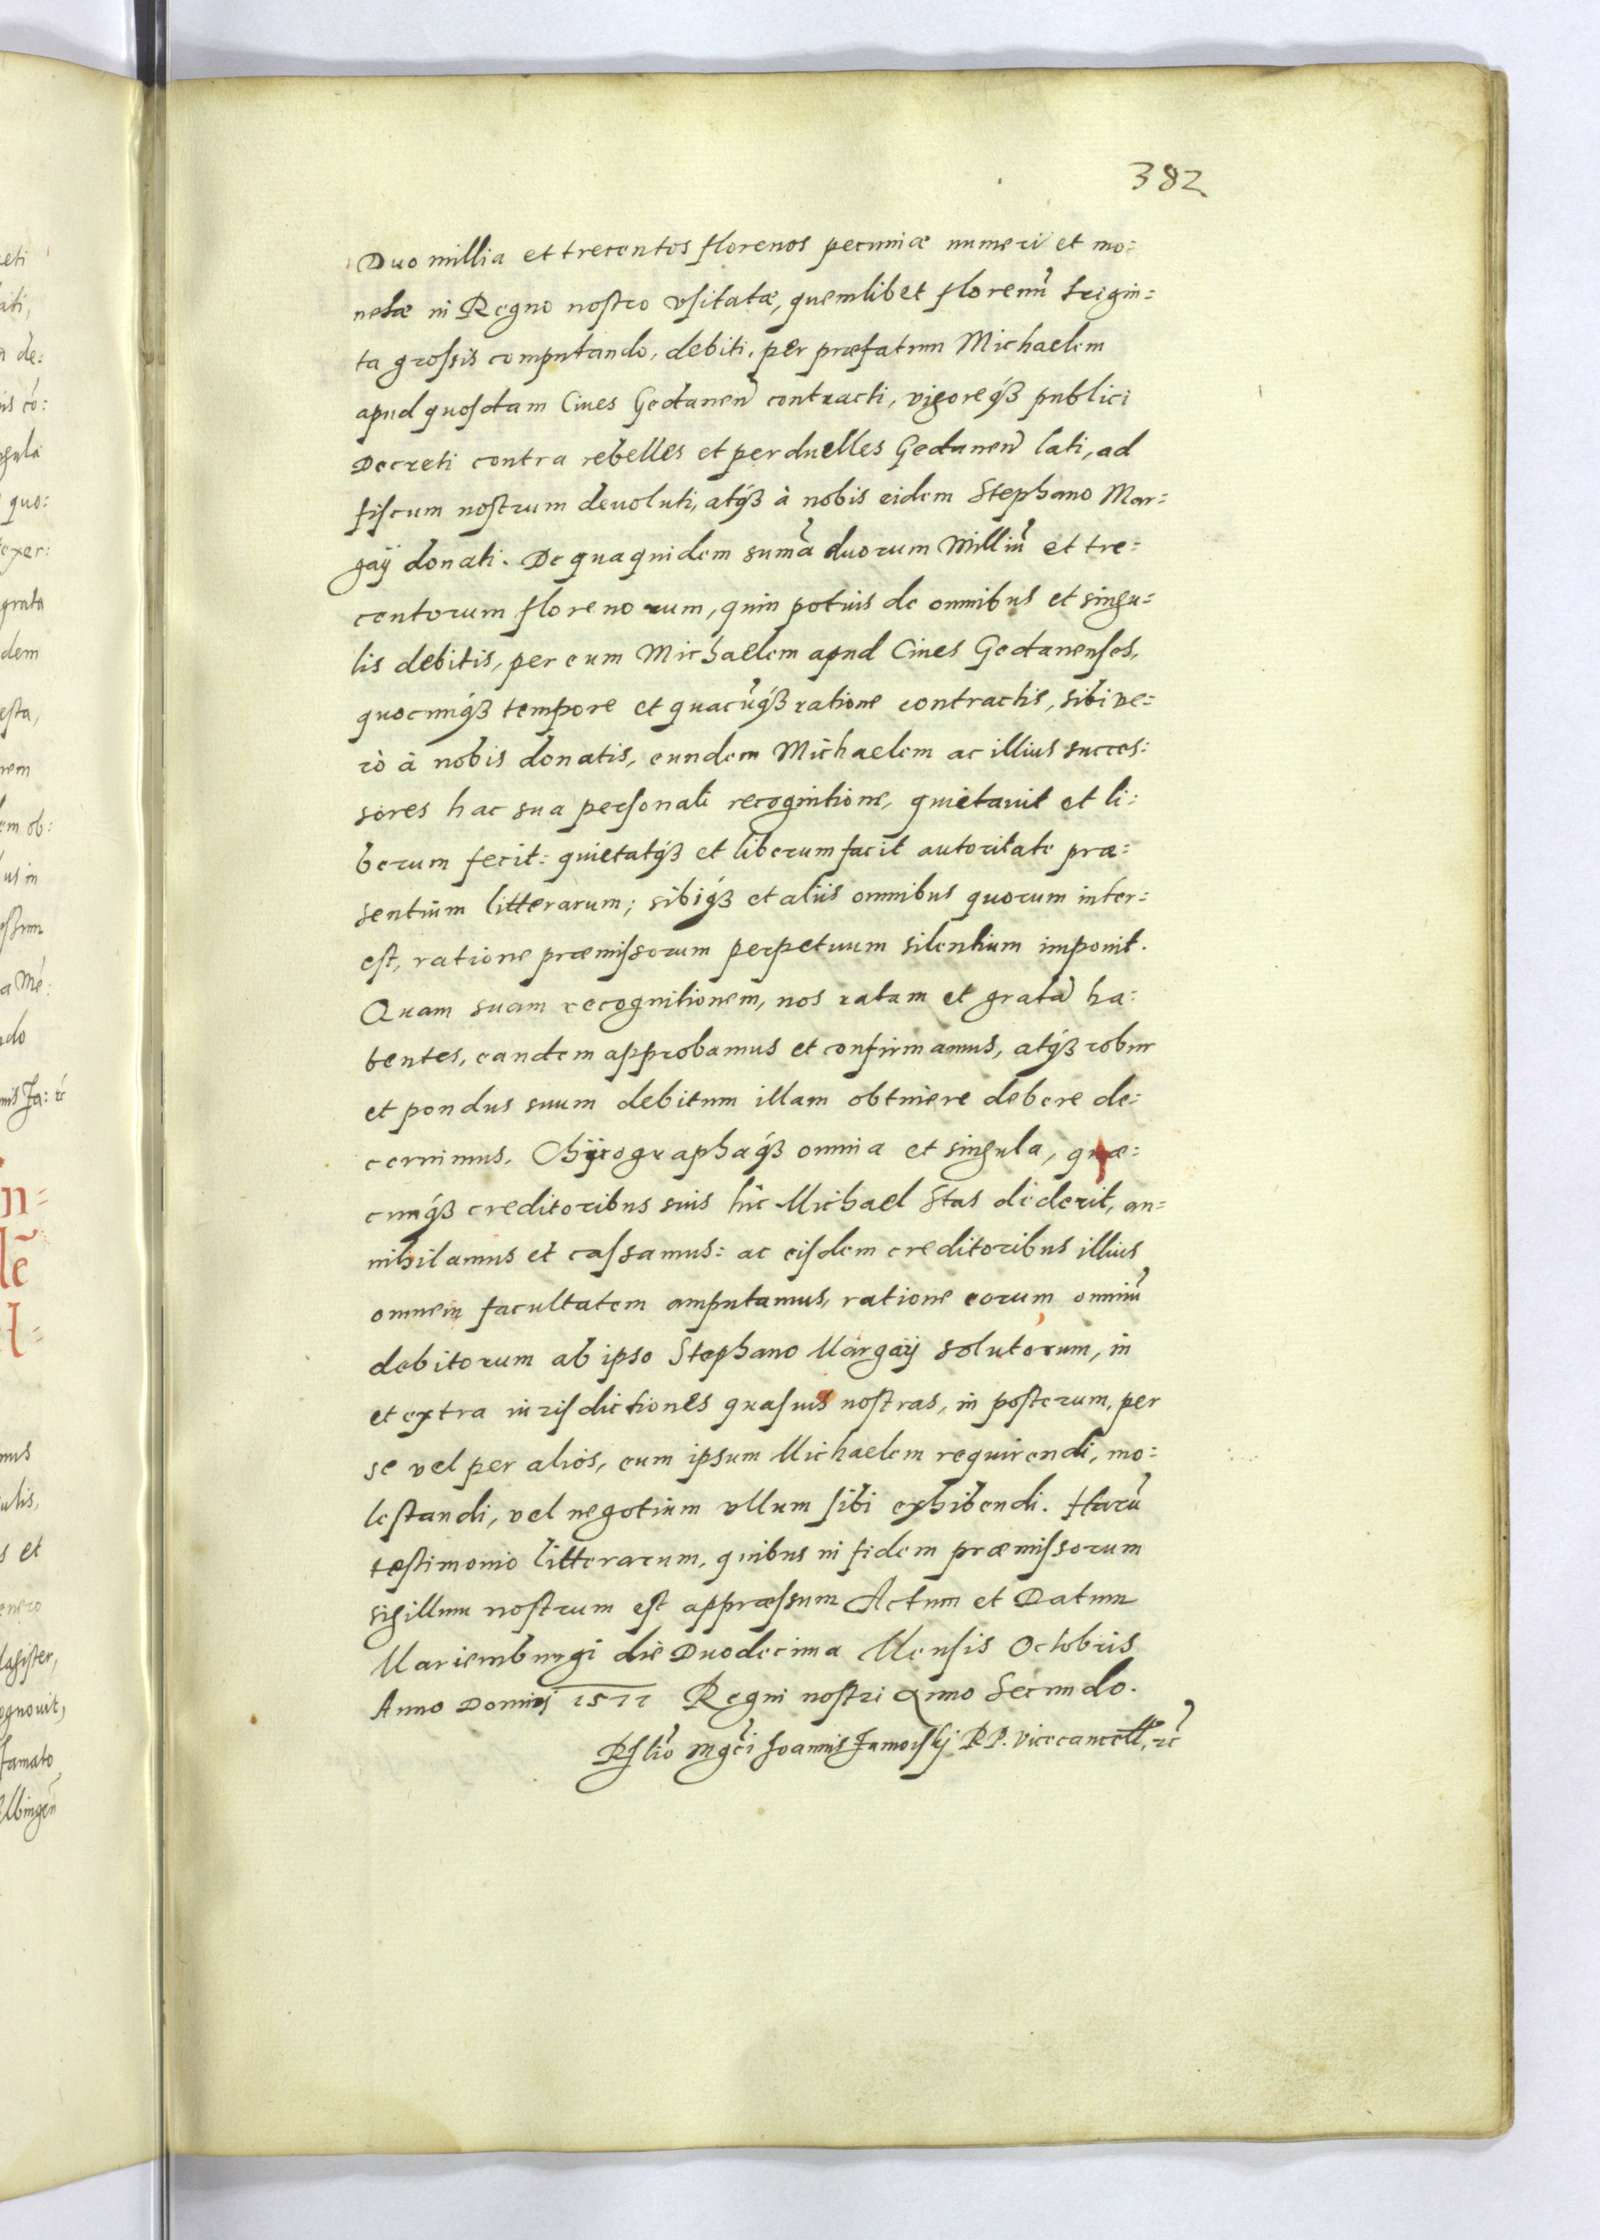 382
Duo millia et trecentos florenos pecuniæ numeri et mo=
netæ in Regno nostro vsitatæ, quemlibet florenũ trigin=
ta grossis computando, debiti, per præfatum Michaelem
apud quosdam Ciues Gedanen̄ contracti, vigoreq́ꝫ publici
Decreti contra rebelles et perduelles Gedanen̄ lati, ad
fiscum nostrum deuoluti, atq́ꝫ à nobis eidem Stephano Mar=
gaÿ donati. De qua quidem sum̃a duorum Milliũ et tre=
centorum florenorum, quin potius de omnibus et singu=
lis debitis, per eum Michaelem apud Ciues Gedanenses,
quocunq́ꝫ tempore et quacũq́ꝫ ratione contractis, sibi ve=
rò à nobis donatis, eundem Michaelem ac illius succes=
sores hac sua personali recognitione, quietauit et li=
berum fecit: quietatq́ꝫ et liberum facit autoritate præ=
sentium litterarum; sibiq́ꝫ et aliis omnibus quorum inter=
est, ratione præmissorum perpetuum silentium imponit.
Quam suam recognitionem, nos ratam et gratã ha=
bentes, eandem approbamus et confirmamus, atq́ꝫ robur
et pondus suum debitum illam obtinere debere de=
cernimus. Chÿrographaq́ꝫ omnia et singula, quæ=
cunq́ꝫ creditoribus suis hic Michael Stas dederit, an=
nihilamus et cassamus: ac eisdem creditoribus illius
omnem facultatem amputamus, ratione eorum omniũ
debitorum ab ipso Stephano Margaÿ solutorum, in
et extra iurisdictiones quasuis nostras, in posterum, per
se vel per alios, eum ipsum Michaelem requirendi, mo=
lestandi, vel negotium vllum sibi exhibendi. Harũ
testimonio litterarum, quibus in fidem præmissorum
sigillum nostrum est appræssum Actum et Datum
Mariemburgi die Duodecima Mensis Octobris
Anno Domini 1577 Regni nostri Anno Secundo.
Rṡlĩo Mgc̃i Joannis Zamoiskj R P. Vicecancell. ꝛc̃